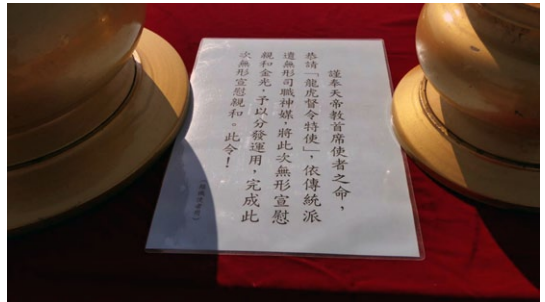 謹奉天帝教首席使者之命，
恭請「龍虎督令特使」，依傳統派
遣無形司職神媒，將此次無形宣慰
親和金光，予以分發運用，完成此
次無形宣慰親和。此令！